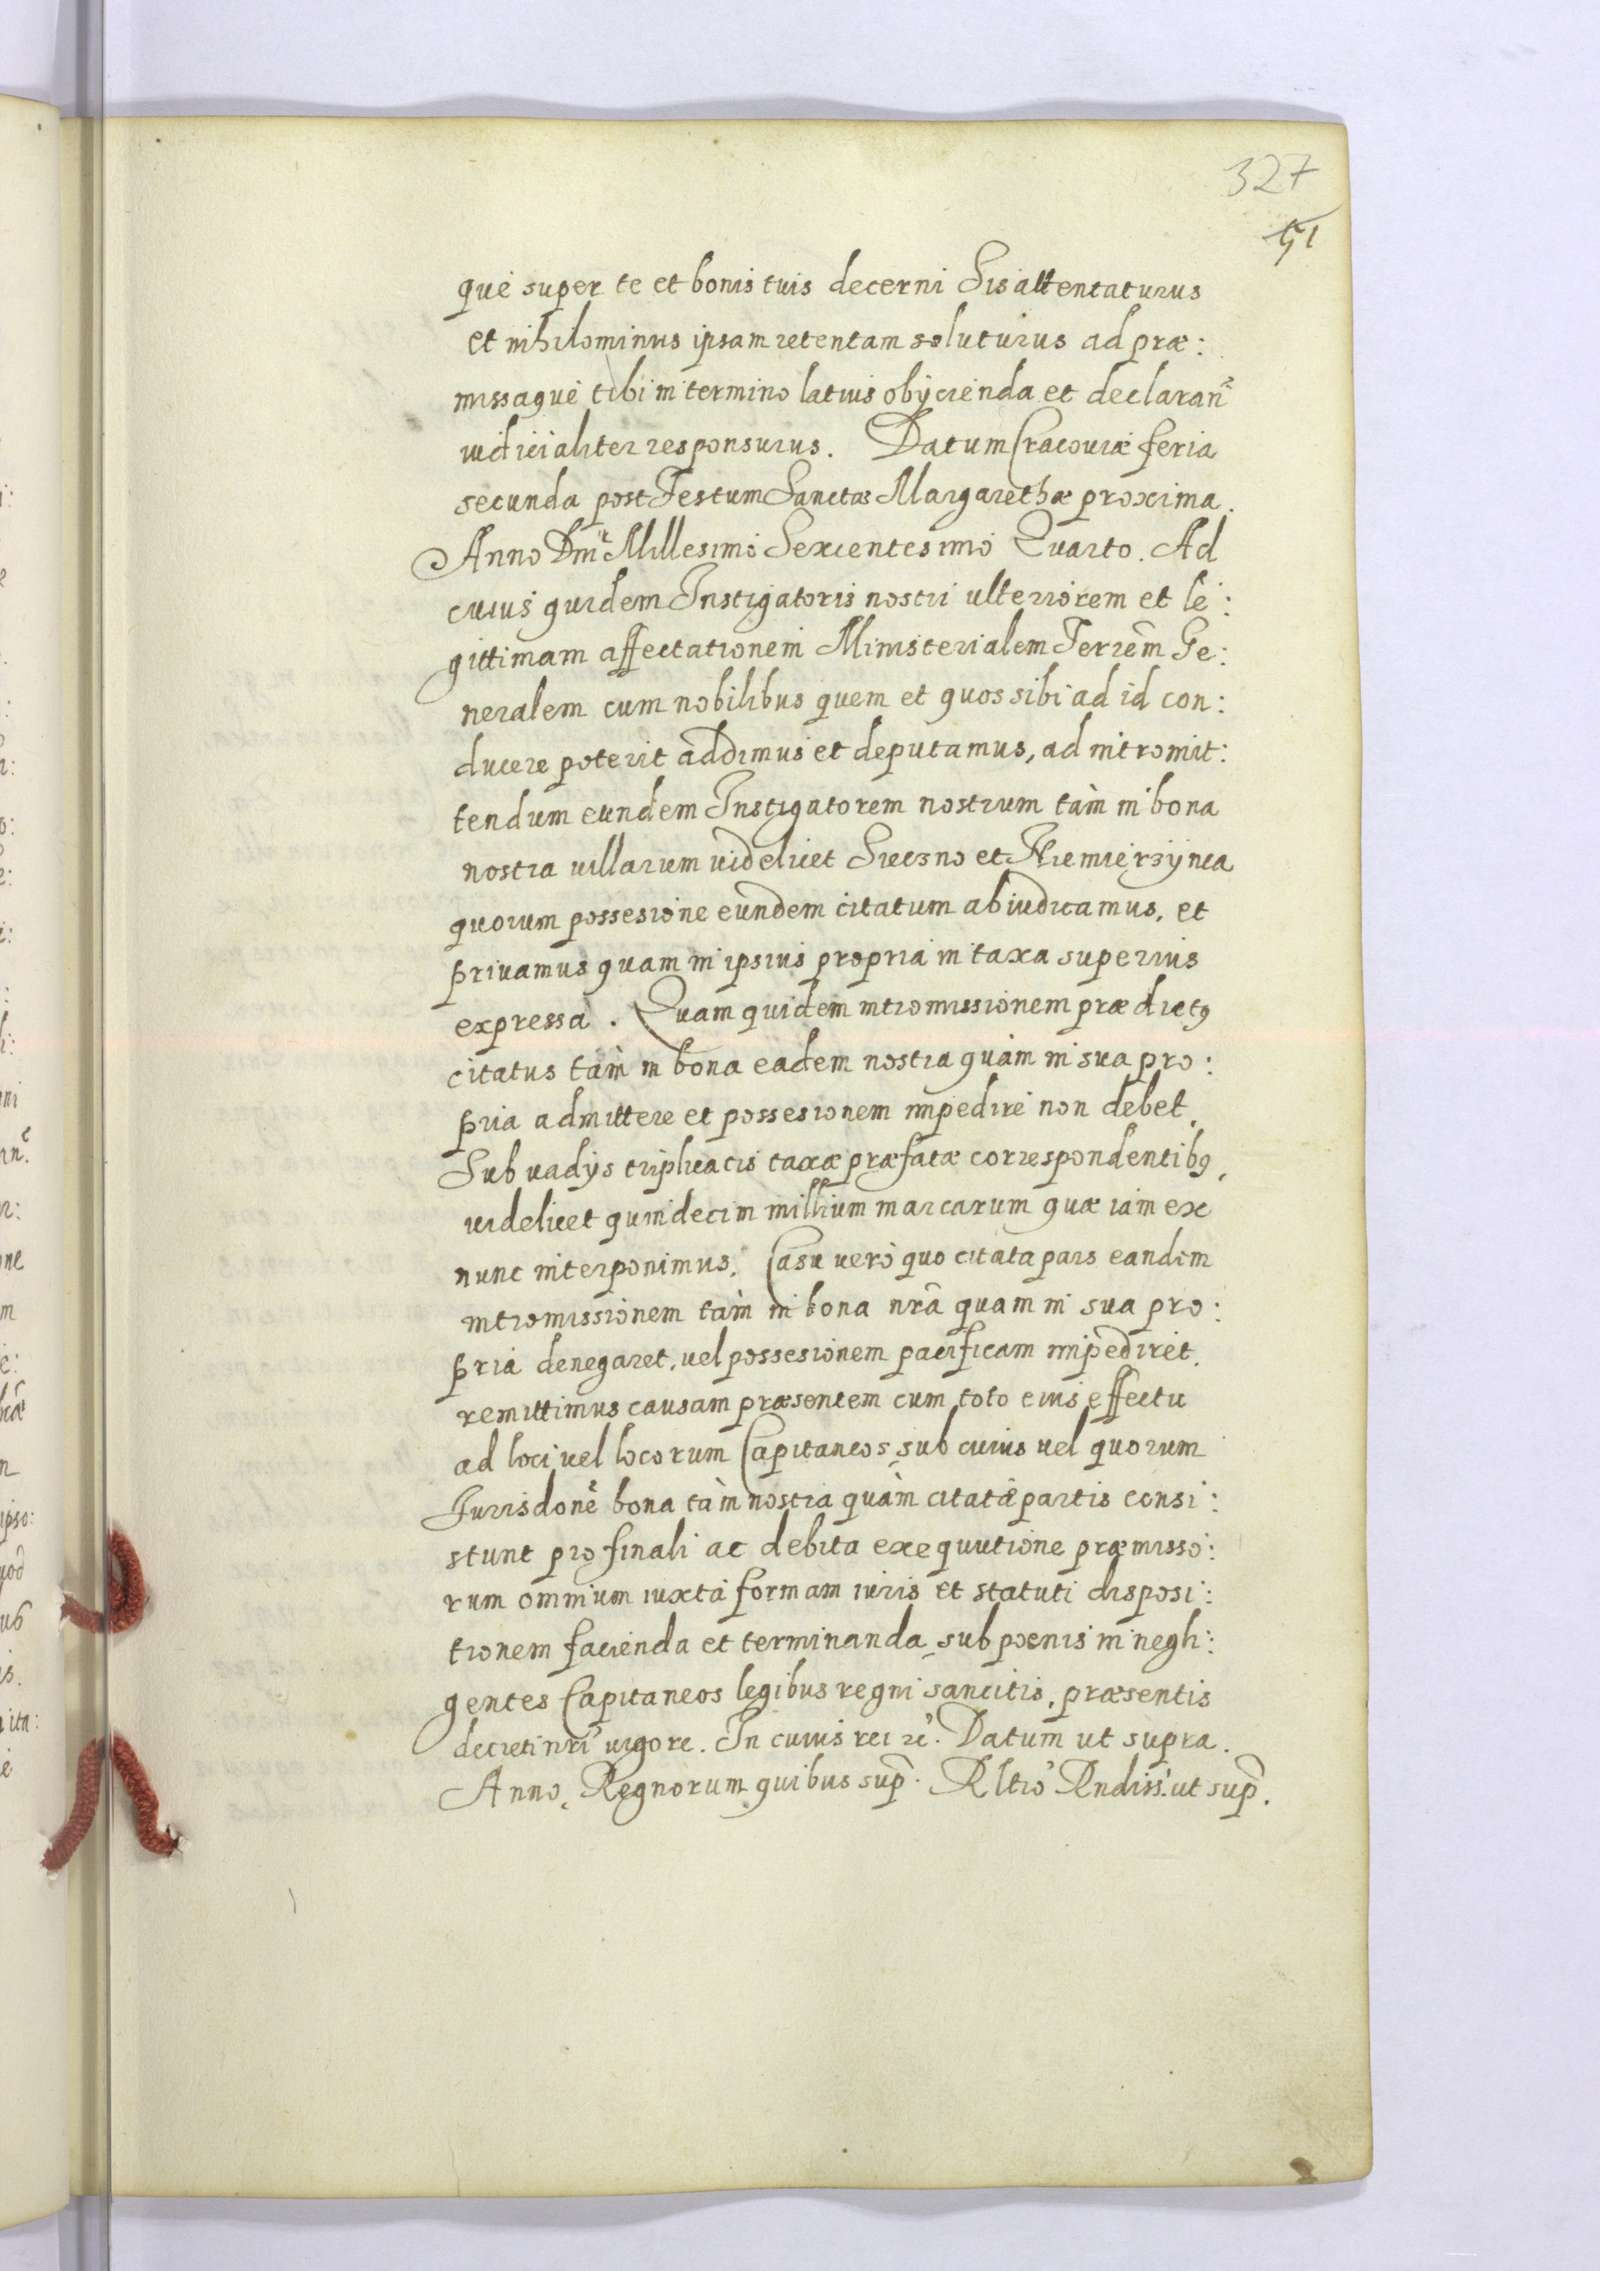 327
51
que super te et bonis tuis decerni Sis attentaturus
et nihilominus ipsam retentam soluturus ad præ:
missaque tibi in termino latius obijcienda et declarañ
iudicialiter responsurus. Datum Cracouiæ feria
secunda post Festum Sanctæ Margarethæ proxima.
Anno Dnĩ Millesimo Sexcentesimo Quarto. Ad
cuius quidem Instigatoris nostri ulteriorem et le:
gittimam affectationem Ministerialem Terrẽm Ge:
neralem cum nobilibus quem et quos sibi ad id con:
ducere poterit addimus et deputamus, ad intromit:
tendum eundem Instigatorem nostrum tàm in bona
nostra uillarum uidelicet et
quorum possesione eundem citatum abiudicamus, et
priuamus quam in ipsius propria in taxa superius
expressa. Quam quidem intromissionem prædictꝰ
citatus tàm in bona eadem nostra quàm in sua pro:
pria admittere et possesionem impedire non debet.
Sub uadijs triplicatis taxæ præfatæ correspondentibꝰ,
uidelicet quindecim millium marcarum quæ iam ex
nunc interponimus. Casu uerò quo citata pars eandem
intromissionem tàm in bona nrã quam in sua pro:
pria denegaret, uel possesionem pacificam impediret,
remittimus causam præsentem cum toto eius effectu
ad loci uel locorum Capitaneos, sub cuius uel quorum
Jurisdonẽ bona tàm nostra quàm citatæ partis consi:
stunt pro finali ac debita exequutione præmisso:
rum omnium iuxta formam iuris et statuti disposi:
tionem facienda et terminanda, sub pœnis in negli:
gentes Capitaneos legibus regni sancitis, præsentis
decreti nrĩ uigore. In cuius rei &. Datum ut supra.
Anno, Regnorum quibus sup̃. Rltiõ Rndiss: ut sup̃.